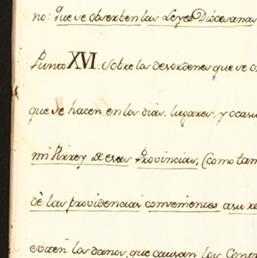 no: que se observen las Leyes Diocesanas
Punto XVI. Sobre los desordenes que se
que se hacen en los dias, lugares, y ocasi
mi Virrey de esas Provincias, (como tam
de las providencias convenientes a su re
eviten los daños, que causan los Cont